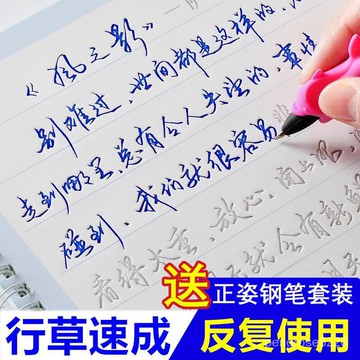 《风之影》
别难过，世间都是这样的，
走到哪里总有令人失望的
碰到，我们就很容易
看得太重，放心，闭上眼，
就会有新鲜
送正姿钢笔套装
行草速成 反复使用